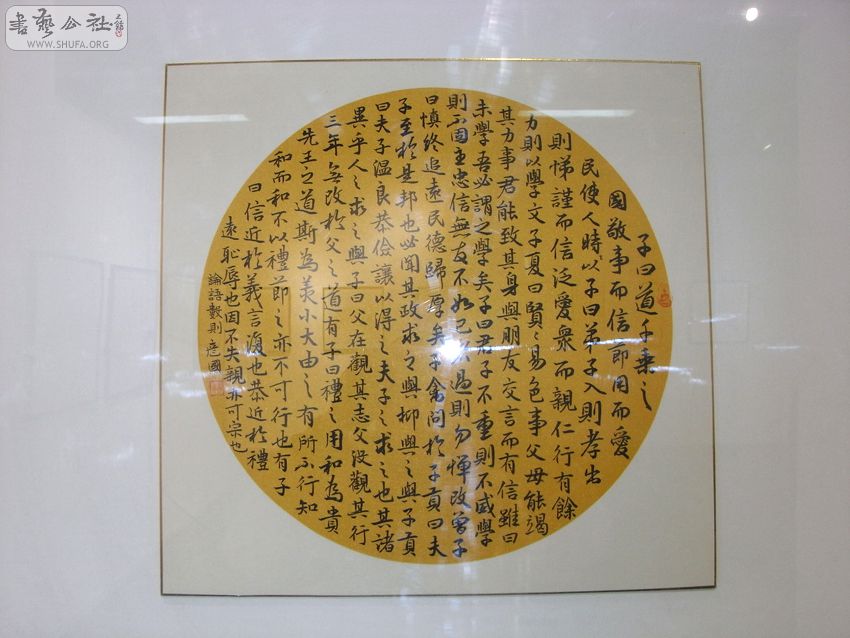 書藝公社
WWW.SHUFA.ORG
子曰道千乘之
國敬事而信節用而愛
民使人時以子曰弟子入則孝出
則悌謹而信泛愛衆而親仁行有餘
力則以學文子夏曰賢〻易色事父母能竭
其力事君能致其身與朋友交言而有信雖曰
未學吾必謂之學矣子曰君子不重則不威學
則不固主忠信無友不如己者過則勿憚改曾子
曰慎終追遠民德歸厚矣子禽問於子貢曰夫
子至於是邦也必聞其政求之與抑與之與子貢
曰夫子溫良恭儉讓以得之夫子之求之也其諸
異乎人之求之與子曰父在觀其志父没觀其行
三年無改於父之道有子曰禮之用和為貴
先王之道斯為美小大由之有所不行知
和而和不以禮節之亦不可行也有子
曰信近於義言復也恭近於禮
遠恥辱也因不失親亦可宗也
論語數則